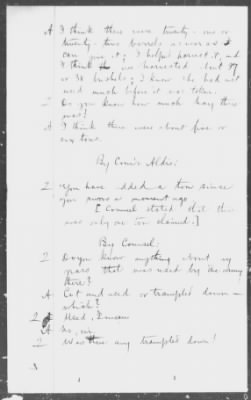 A I think there were twenty-one or
twenty-two barrels as near as I
can give it; I helped harvest it, and
I think he harvested but 37
or 38 bushels; I know she had not
used much before it was taken.
2 Do you know how much hay there
was?
A I think there were about five or
six tons.
By Com'r Aldis:
2 You have added a ton since
you swore a moment ago
[Counsel stated that there
was only one ton claimed.]
By Counsel:
2 Do you know anything about any
grass that was used by the army
there?
A Cut and used or trampled down—
which?
2 Used, I mean
A No, sir.
2 Was there any trampled down?